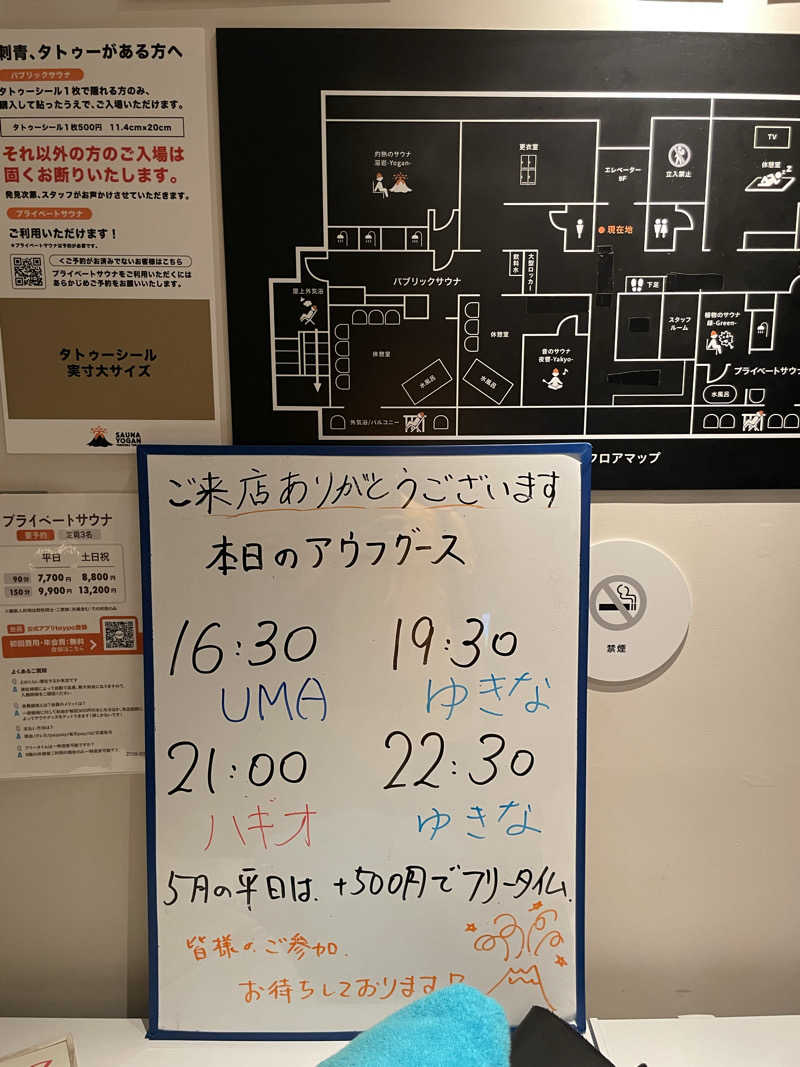 刺青、タトゥーがある方へ
パブリックサウナ
タトゥーシール1枚で隠れる方のみ、
購入して貼ったうえで、ご入場いただけます。
タトゥーシール1枚500円 11.4cm×20cm
それ以外の方のご入場は
固くお断りいたします。
発見次第、スタッフがお声かけさせていただきます。
プライベートサウナ
ご利用いただけます！
※プライベートサウナは予約が必要です。
＜ご予約がお済みでないお客様はこちら
プライベートサウナをご利用いただくには
あらかじめご予約をお願いいたします。
タトゥーシール
実寸大サイズ
SAUNA
YOGAN
灼熱のサウナ
溶岩-Yogan-
更衣室
エレベーター
9F
立入禁止
TV
休憩室
現在地
パブリックサウナ
飲料水
大型ロッカー
下足
屋上外気浴
休憩室
休憩室
水風呂
水風呂
音のサウナ
夜響-Yakyo-
スタッフ
ルーム
植物のサウナ
緑-Green-
プライベートサウナ
水風呂
外気浴/バルコニー
フロアマップ
プライベートサウナ
要予約 定員3名
平日 土日祝
90分 7,700円 8,800円
150分 9,900円 13,200円
会員 公式アプリHeypo登録
初回費用・年会費：無料
会員はこちら
よくあるご質問
ご来店ありがとうございます
本日のアウフグース
16:30 19:30
UMA ゆきな
21:00 22:30
ハギオ ゆきな
5月の平日は、+500円でフリータイム。
皆様の、ご参加、
お待ちしております!?
禁煙